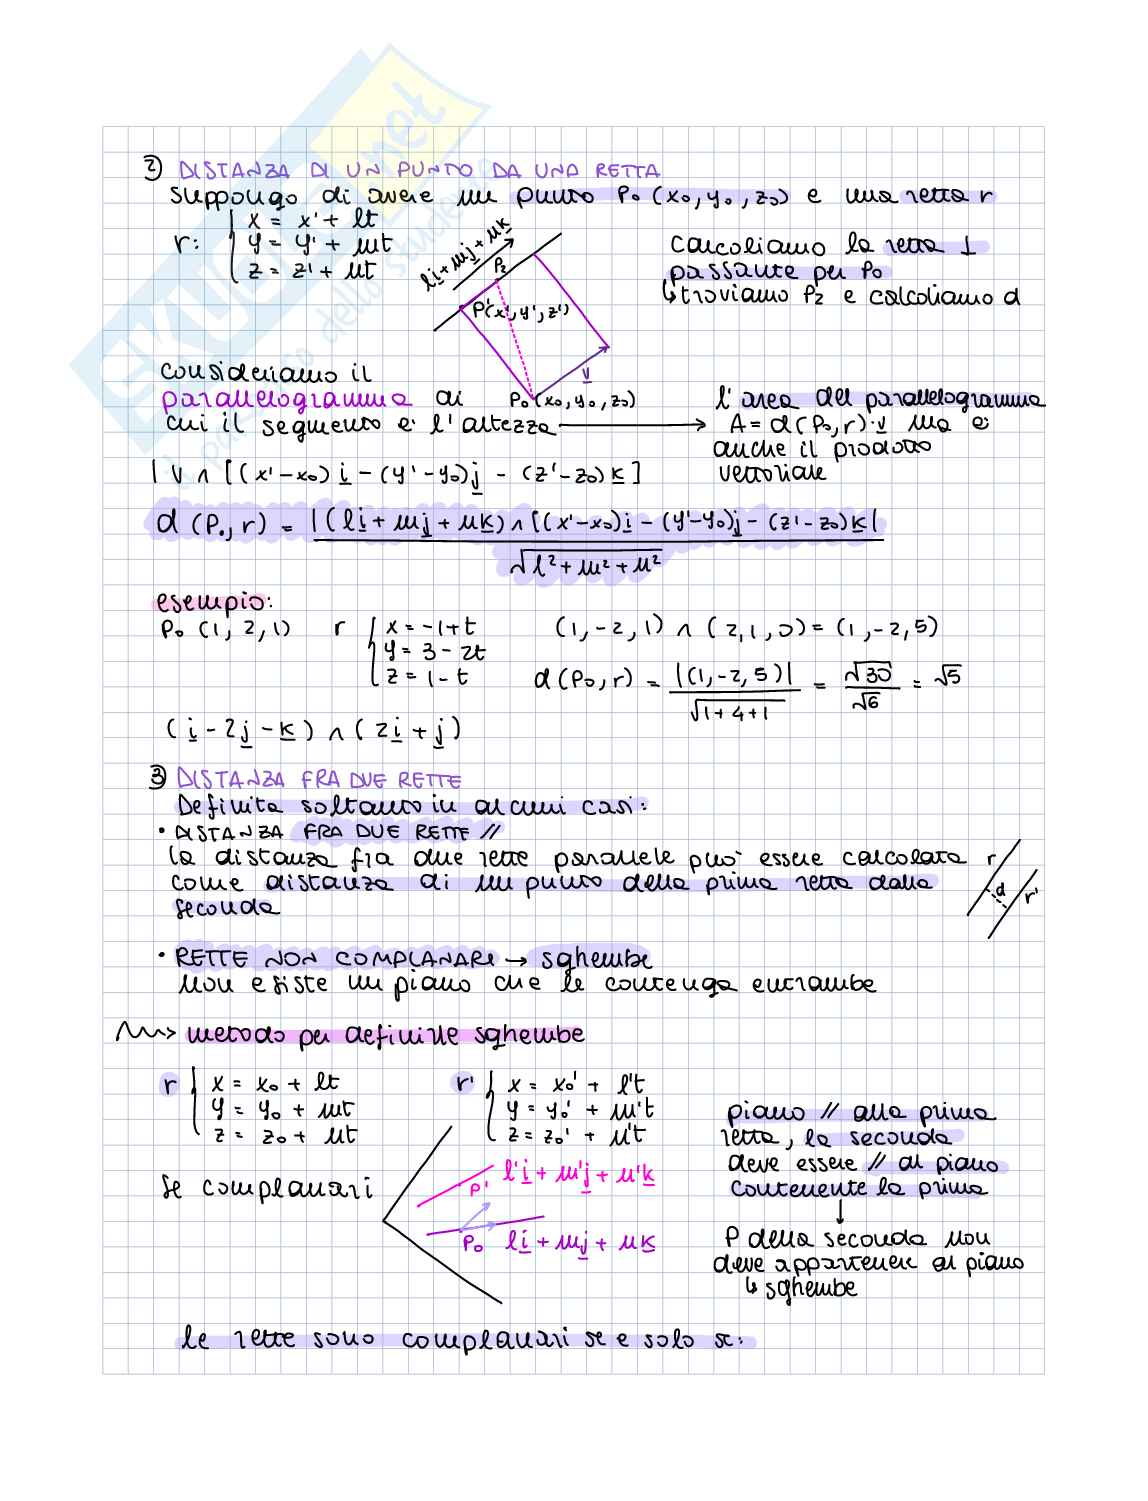 2) DISTANZA DI UN PUNTO DA UNA RETTA
suppongo di avere un punto P₀ (x₀, y₀, z₀) e una retta r
r: { x = x' + lt
y = y' + mt
z = z' + nt
li + mj + nk
P₂
P'(x', y', z')
v
P₀ (x₀, y₀, z₀)
calcoliamo la retta ⊥
passante per P₀
↳ troviamo P₂ e calcoliamo d
consideriamo il
parallelogramma di
cui il segmento è l'altezza →
l'area del parallelogramma
A = d(P₀, r)·v ma è
anche il prodotto
vettoriale
| v ∧ [(x'-x₀) i - (y'-y₀) j - (z'-z₀) k ]
d (P₀, r) = |(li + mj + nk) ∧ [(x'-x₀)i - (y'-y₀)j - (z'-z₀)k|
√l² + m² + n²
esempio:
P₀ (1, 2, 1) r { x = -1+t
y = 3 - 2t
z = 1 - t
(1, -2, 1) ∧ (2, 1, 0) = (1, -2, 5)
d (P₀, r) = |(1, -2, 5)| / √1+4+1 = √30 / √6 = √5
(i - 2j - k) ∧ (2i + j)
3) DISTANZA FRA DUE RETTE
Definita soltanto in alcuni casi:
• DISTANZA FRA DUE RETTE //
la distanza fra due rette parallele può essere calcolata
come distanza di un punto della prima retta dalla
seconda
r d r'
• RETTE NON COMPLANARI → sghembe
non esiste un piano che le contenga entrambe
metodo per definirle sghembe
r { x = x₀ + lt
y = y₀ + mt
z = z₀ + nt
r' { x = x₀' + l't
y = y₀' + m't
z = z₀' + n't
se complanari
P' l'i + m'j + n'k
P₀ li + mj + nk
piano // alla prima
retta, la seconda
deve essere // al piano
contenente la prima
↓
P della seconda non
deve appartenere al piano
↳ sghembe
le rette sono complanari se e solo se: